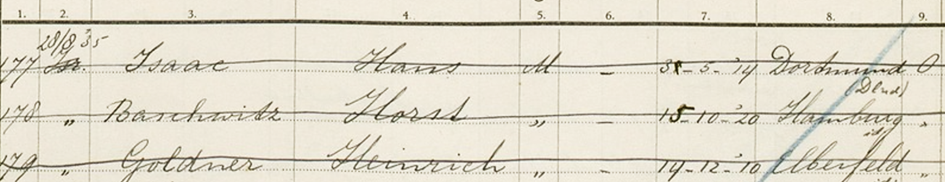 1. 2. 3. 4. 5. 6. 7. 8. 9.
28/8 '35
177 Isaac Hans M – 31-5-'14 Dortmund O
(Dlnd)
178 „ Baschwitz Horst „ – 15-10-'20 Hamburg „
id
179 „ Goldner Heinrich „ – 19-12-'10 Elberfeld „